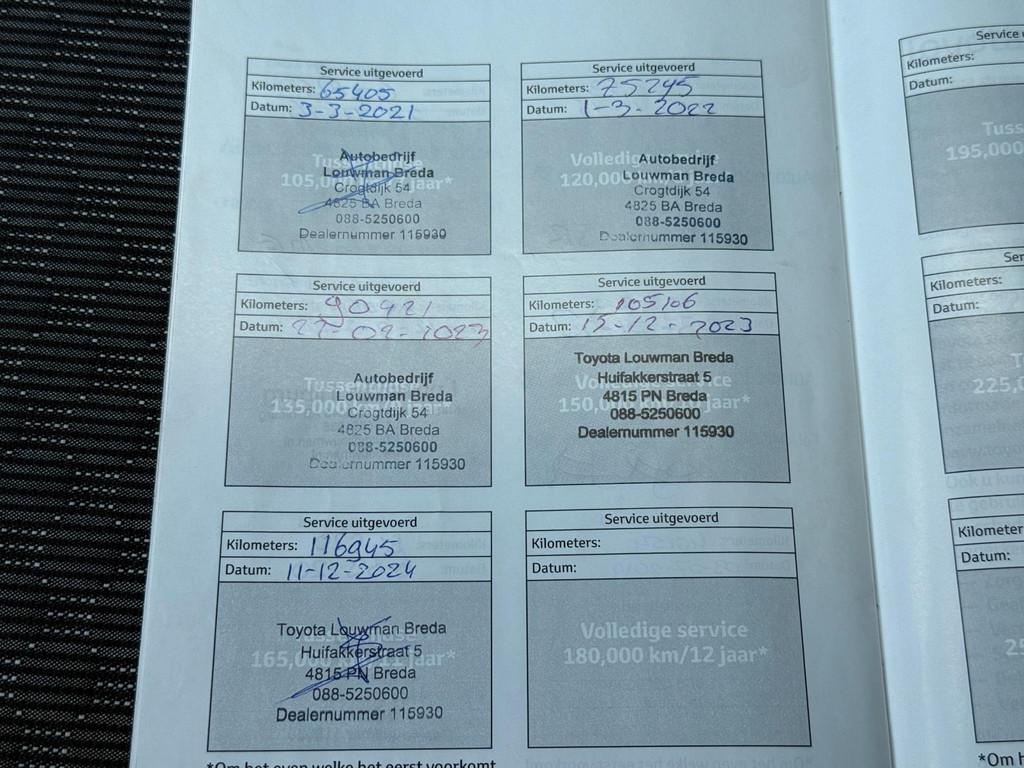 Service uitgevoerd
Kilometers: 65405
Datum: 3-3-2021
Autobedrijf
Louwman Breda
Crogtdijk 54
4825 BA Breda
088-5250600
Dealernummer 115930
105,0 jaar*
Service uitgevoerd
Kilometers: 75245
Datum: 1-3-2022
Autobedrijf
Louwman Breda
Crogtdijk 54
4825 BA Breda
088-5250600
Dealernummer 115930
120,000
Service uitgevoerd
Kilometers: 90421
Datum: 27-02-1023
Autobedrijf
Louwman Breda
Crogtdijk 54
4825 BA Breda
088-5250600
Dealernummer 115930
135,000
Service uitgevoerd
Kilometers: 105106
Datum: 12-12-2023
Toyota Louwman Breda
Huifakkerstraat 5
4815 PN Breda
088-5250600
Dealernummer 115930
Volledige service
150,000 km/10 jaar*
Service uitgevoerd
Kilometers: 116945
Datum: 11-12-2024
Toyota Louwman Breda
Huifakkerstraat 5
4815 PN Breda
088-5250600
Dealernummer 115930
165,000 km/11 jaar*
Service uitgevoerd
Kilometers:
Datum:
Volledige service
180,000 km/12 jaar*
*Om het even welke het eerst voorkomt
Service
Kilometers:
Datum:
Tuss
195,000
Ser
Kilometers:
Datum:
225,0
Kilometer
Datum:
25
*Om h